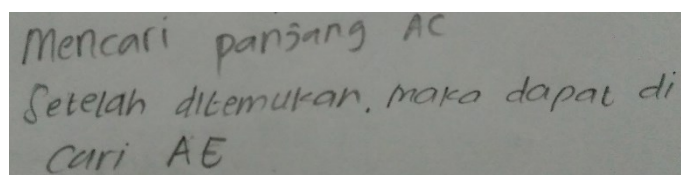 Mencari panjang AC
Setelah ditemukan, maka dapat di
cari AE